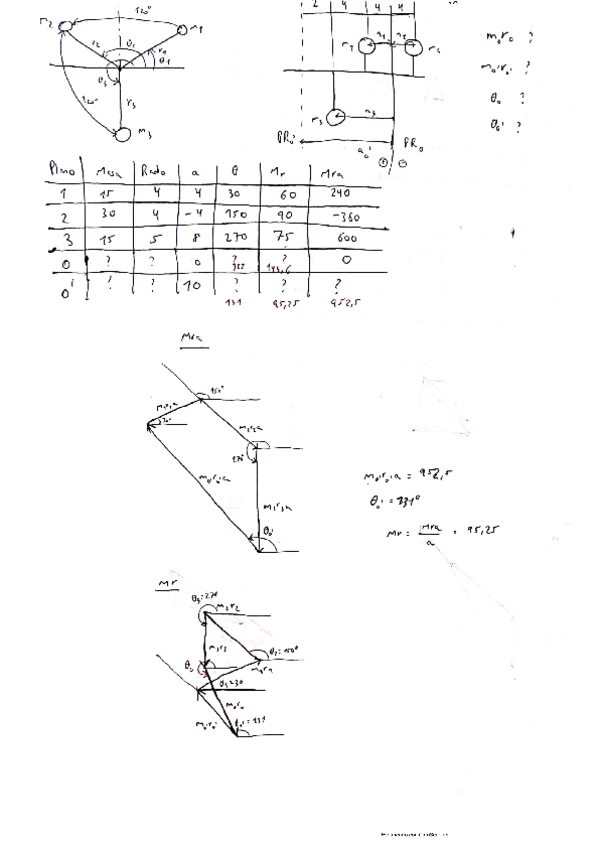 120°
m2
m1
r2
θ2
r1
θ1
θ3
120°
r3
m3
2 4 4 4
m1
m2
m3
a3
PR0'
PR0
a0'
m0r0 ?
m0'r0' ?
θ0 ?
θ0' ?
Plano Masa Radio a θ Mr Mra
1 15 4 4 30 60 240
2 30 4 -4 150 90 -360
3 15 5 8 270 75 600
0 ? ? 0 ? ? 0
0' ? ? 10 ? ? ?
131 95,25 952,5
Mra
150°
m1r1a
m2r2a
270°
m0'r0'a
m3r3a
θ0'
m0'r0'a = 952,5
θ0' = 131°
Mr = Mra/a = 95,25
Mr
θ3=270
m2r2
m3r3
θ2=150°
θ0
m1r1
θ1=30
m0r0
m0'r0'
θ0'=131